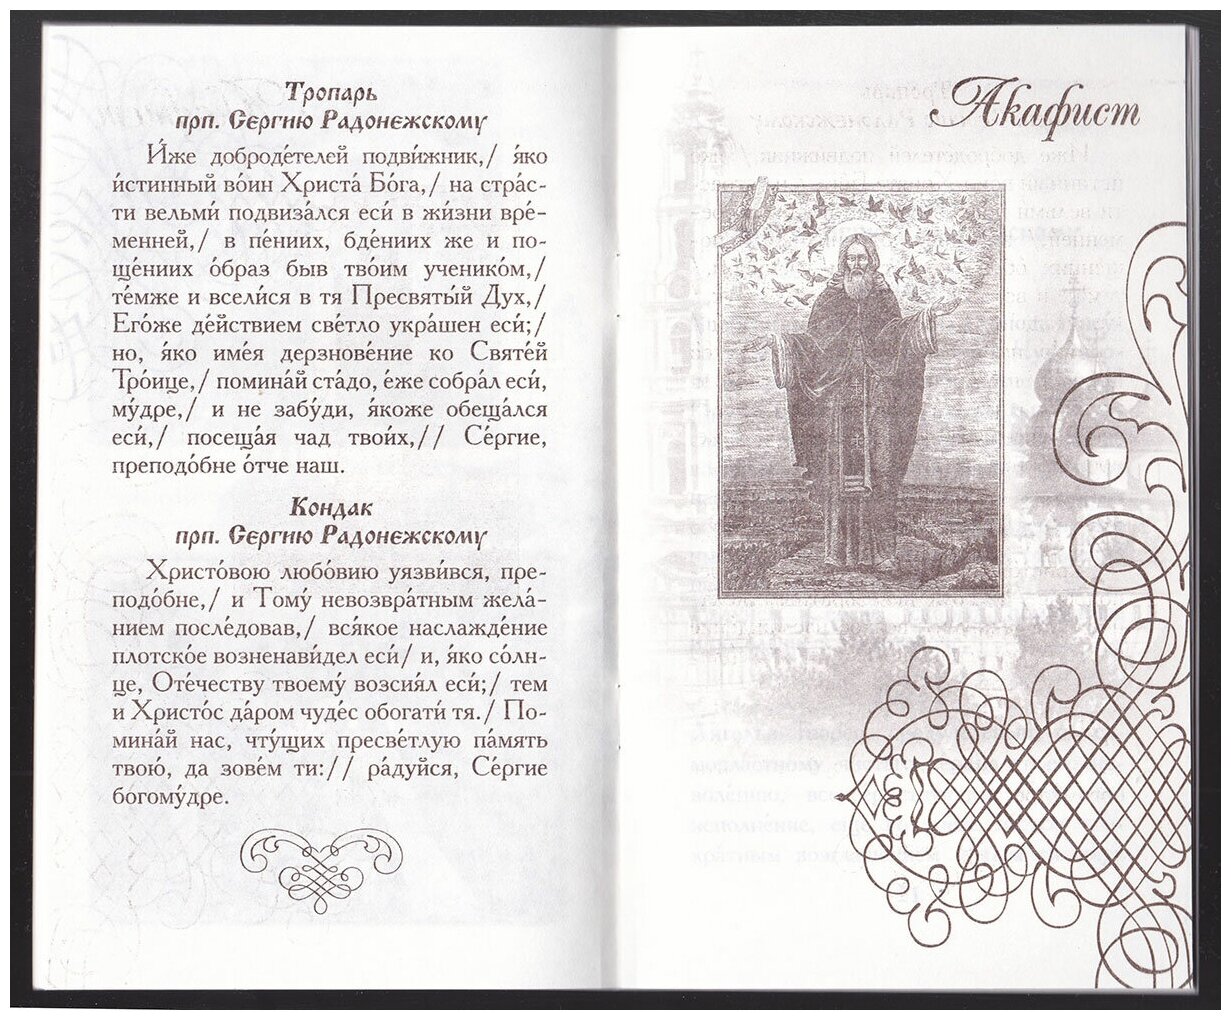 Тропарь
прп. Сергию Радонежскому
И́же доброде́телей подви́жник,/ я́ко
и́стинный во́ин Христа́ Бо́га,/ на стра́с-
ти вельми́ подвиза́лся еси́ в жи́зни вре́-
менней,/ в пе́ниих, бде́ниих же и по-
ще́ниих о́браз быв твои́м ученико́м,/
те́мже и всели́ся в тя Пресвяты́й Дух,/
Его́же де́йствием све́тло укра́шен еси́;/
но, я́ко име́я дерзнове́ние ко Святе́й
Тро́ице,/ помина́й ста́до, е́же собра́л еси́,
му́дре,/ и не забу́ди, я́коже обеща́лся
еси́,/ посеща́я чад твои́х,// Се́ргие,
преподо́бне о́тче наш.
Кондак
прп. Сергию Радонежскому
Христо́вою любо́вию уязви́вся, пре-
подо́бне,/ и Тому́ невозвра́тным жела́-
нием после́довав,/ вся́кое наслажде́ние
плотско́е возненави́дел еси́/ и, я́ко со́лн-
це, Оте́честву твоему́ возсия́л еси́;/ тем
и Христо́с да́ром чуде́с обогати́ тя./ По-
мина́й нас, чту́щих пресве́тлую па́мять
твою́, да зове́м ти:// ра́дуйся, Се́ргие
богому́дре.
Акафист